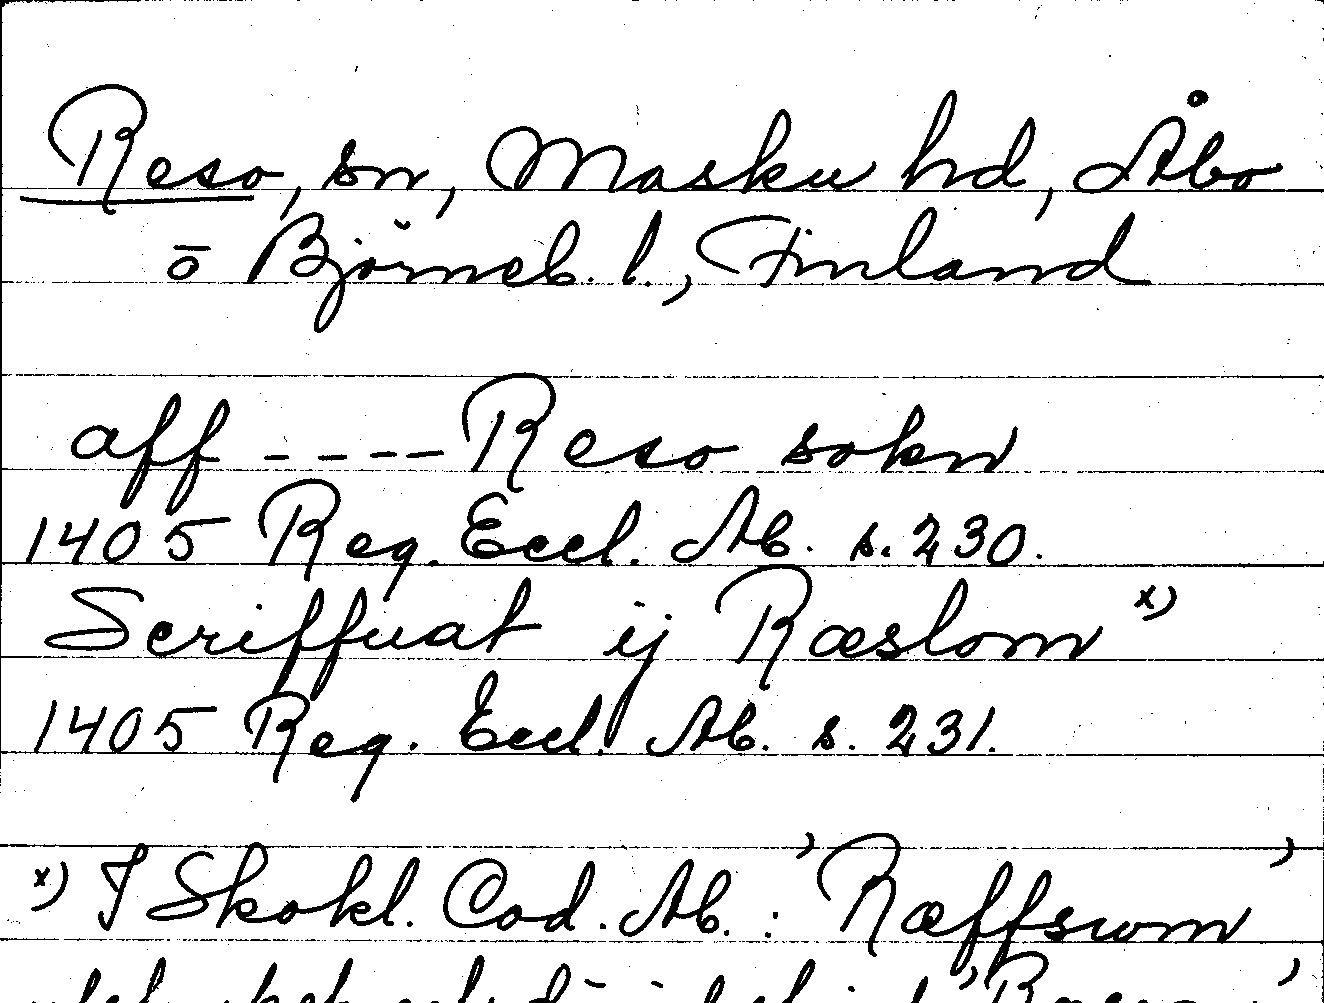 Reso, sn, Masku hd, Åbo
o Björneb. l., Finland
aff ---- Reso sokn
1405 Reg. Eccl. Ab. s. 230.
Scriffuat ij Ræslom x)
1405 Reg. Eccl. Ab. s. 231.
x) I Skokl. Cod. Ab.: 'Ræffswm'